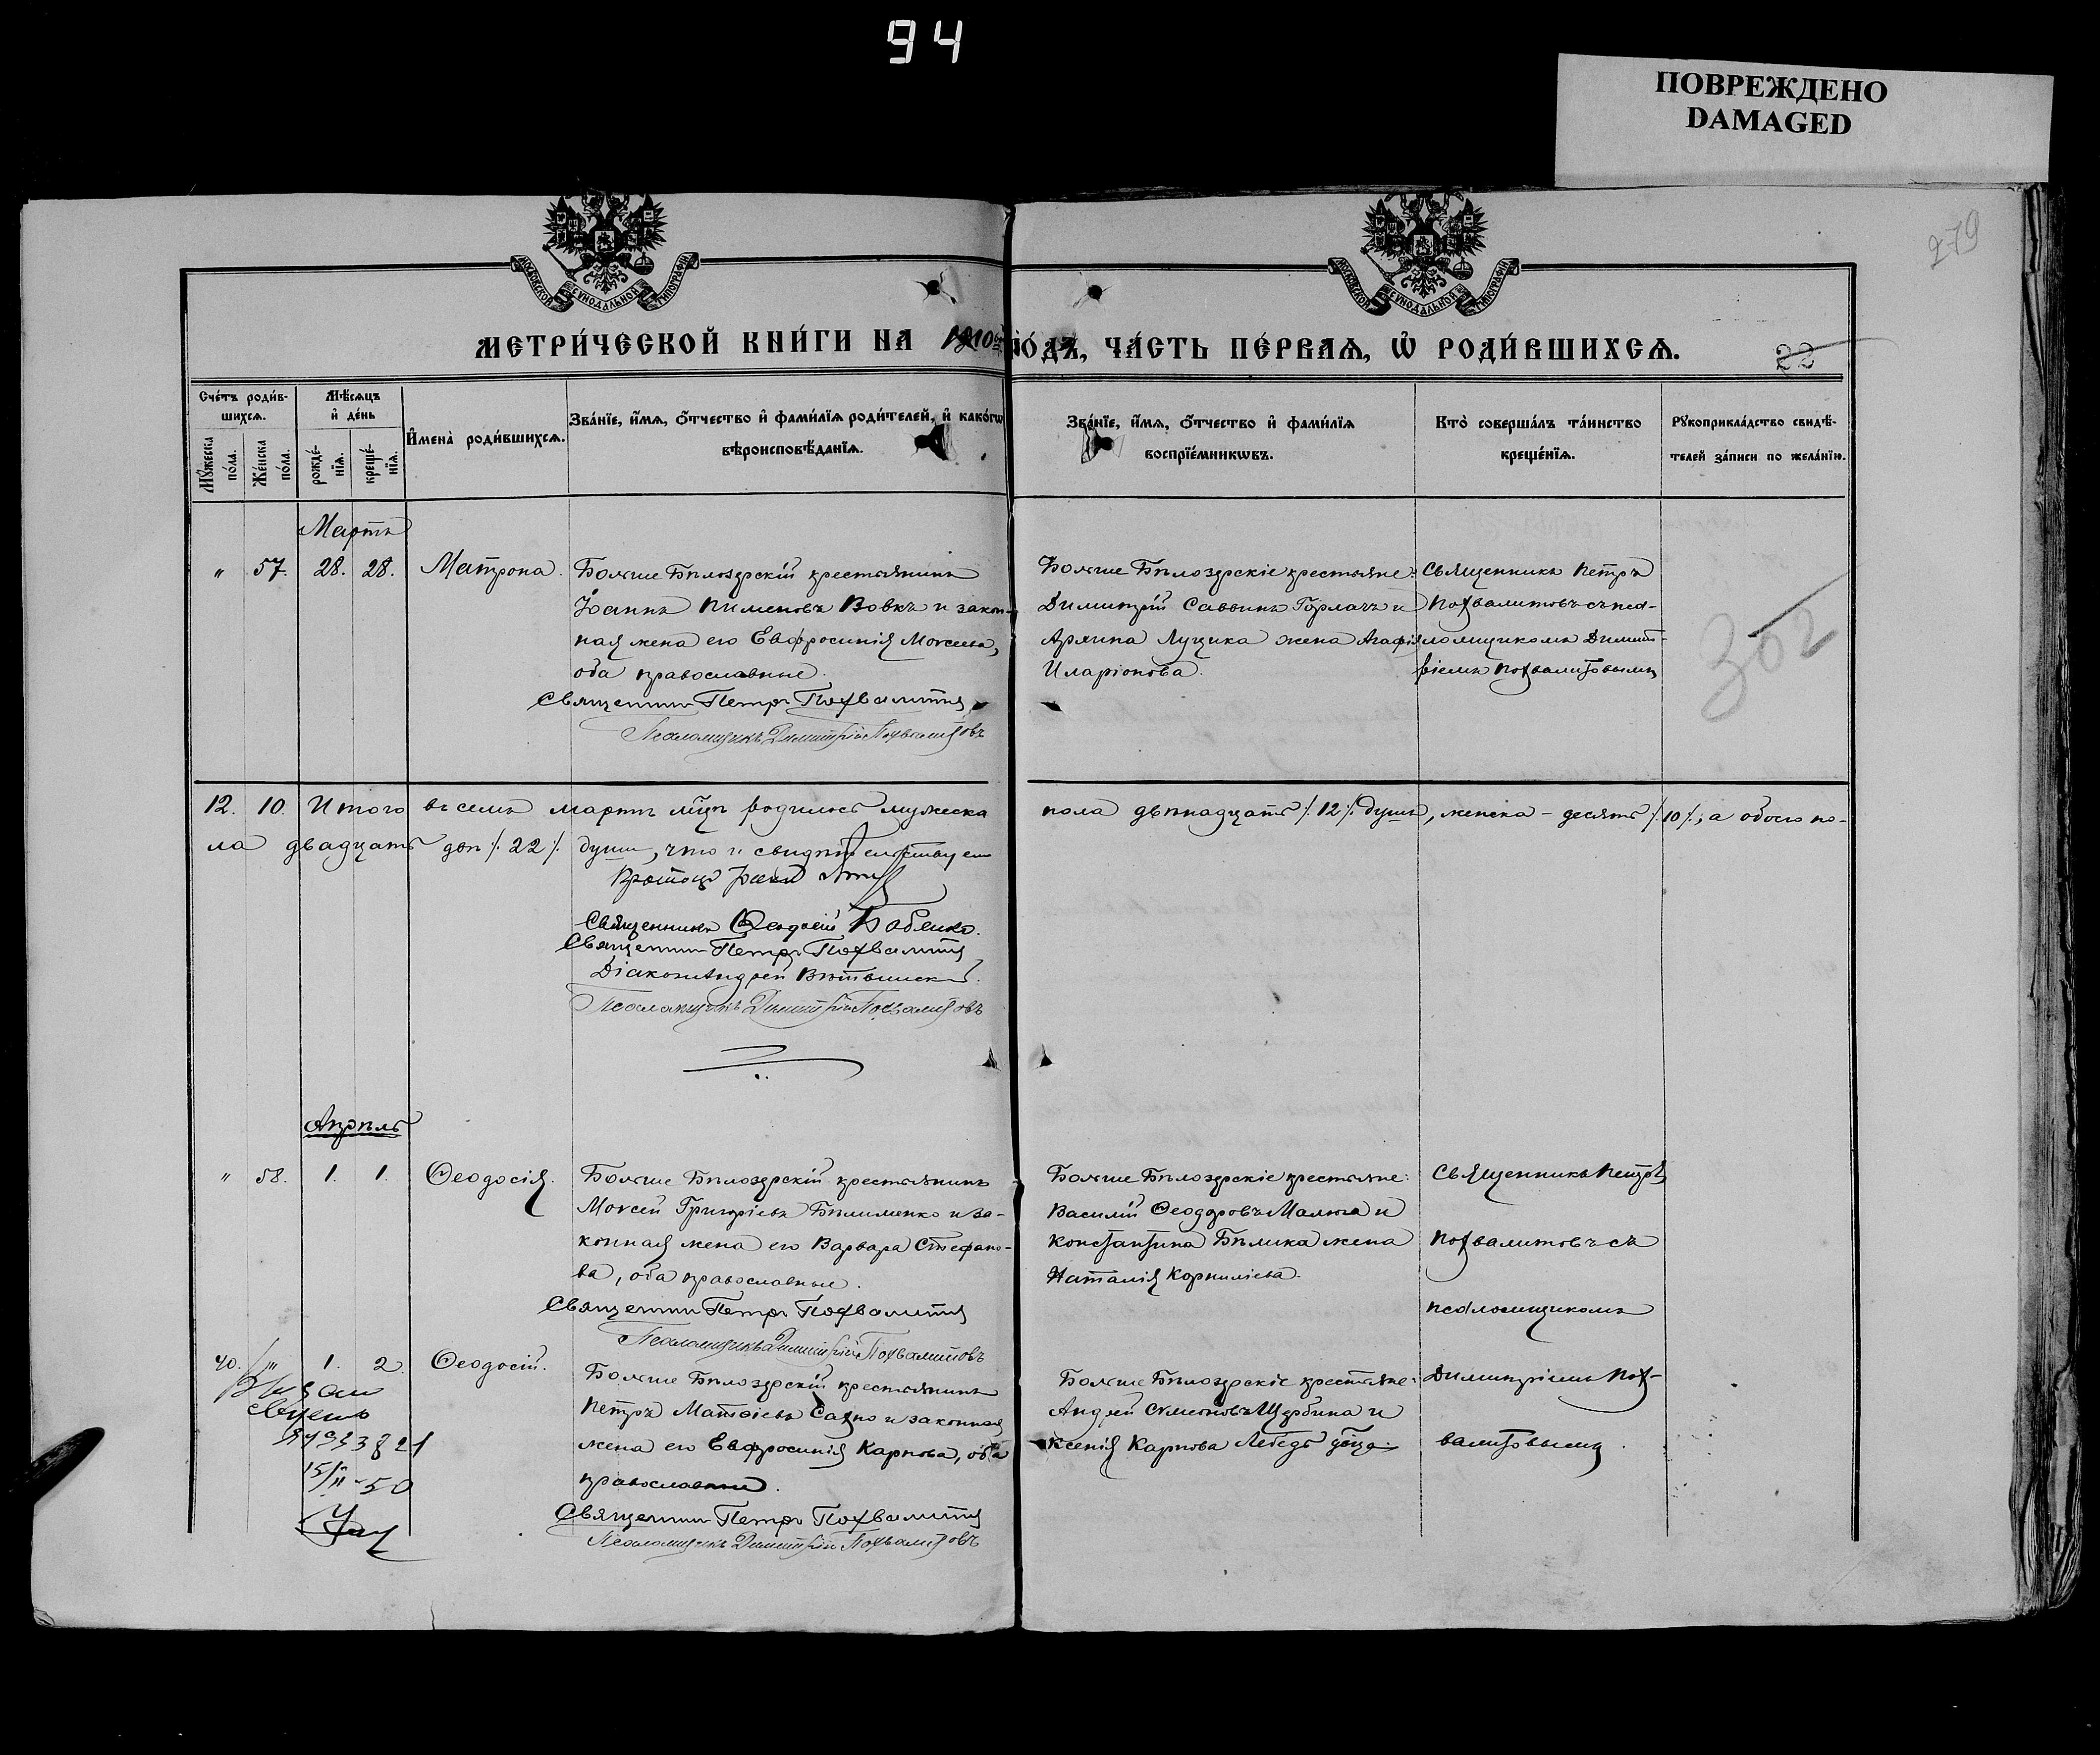 94
ПОВРЕЖДЕНО
DAMAGED
279
МОСКОВСКОЙ СѴНОДАЛЬНОЙ ТИПОГРАФІИ
МОСКОВСКОЙ СѴНОДАЛЬНОЙ ТИПОГРАФІИ
МЕТРИ́ЧЕСКОЙ КНИ́ГИ НА 1910 ГО́ДЪ, ЧА́СТЬ ПЕ́РВАѦ, Ѡ҆ РОДИ́ВШИХСѦ.
22
Сче́тъ роди́в-
шихсѧ.
Мꙋ́жеска
по́ла.
Же́нска
по́ла.
Мѣ́сѧцъ
и҆ де́нь
рожде́-
нїѧ.
креще́-
нїѧ.
И҆мена̀ роди́вшихсѧ.
Зва́нїе, и҆́мѧ, ѻ҆́тчество и҆ фами́лїѧ роди́телей, и҆ како́гѡ
вѣроисповѣ́данїѧ.
Зва́нїе, и҆́мѧ, ѻ҆́тчество и҆ фами́лїѧ
воспрїе́мникѡвъ.
Кто̀ соверша́лъ та́инство
креще́нїѧ.
Рꙋкоприкла́дство свидѣ́-
телей за́писи по жела́нїю.
Мартъ
" 57. 28. 28. Матрона.
Больше Бѣлозерскій крестьянинъ
Іоаннъ Пименовъ Вовкъ и закон-
ная жена его Евфросинія Моѵсеева,
оба православные.
Священникъ Петръ Похвалитовъ
Псаломщикъ Димитрій Похвалитовъ
Больше Бѣлозерскіе крестьяне:
Димитрій Саввинъ Горлачъ и
Луцика жена Агафія
Иларіонова.
Священникъ Петръ
Похвалитовъ съ пса-
ломщикомъ Димит-
ріемъ Похвалитовымъ
302
12. 10. Итого въ семъ мартѣ мцѣ родилось мужеска пола двѣнадцать /. 12 /. душъ, женска – десять /. 10 /., а обоего по-
ла двадцать двѣ /. 22 /. души, что и свидѣтельствуемъ
Священникъ Ѳеодосій Бабенко.
Священникъ Петръ Похвалитовъ
Діаконъ Андрей
Псаломщикъ Димитрій Похвалитовъ
Апрѣль
" 58. 1. 1. Ѳеодосія.
Больше Бѣлозерскій крестьянинъ
Моѵсей Григоріевъ Бѣлименко и за-
конная жена его Варвара Стефано-
ва, оба православные.
Священникъ Петръ Похвалитовъ
Псаломщикъ Димитрій Похвалитовъ
Больше Бѣлозерскіе крестьяне:
Василій Ѳеодоровъ Малюга и
Константина Бѣлика жена
Наталія Корниліева.
Священникъ Петръ
Похвалитовъ съ
псаломщикомъ
Димитріемъ Пох-
валитовымъ.
40. " 1. 2. Ѳеодосій.
Больше Бѣлозерскій крестьянинъ
Петръ Матѳіевъ Сахно и законная
жена его Евфросинія Карпова, оба
православные.
Священникъ Петръ Похвалитовъ
Псаломщикъ Димитрій Похвалитовъ
Больше Бѣлозерскіе крестьяне:
Андрей Сѵмеоновъ Щербина и
Ксенія Карпова Лебедь
15/II-50